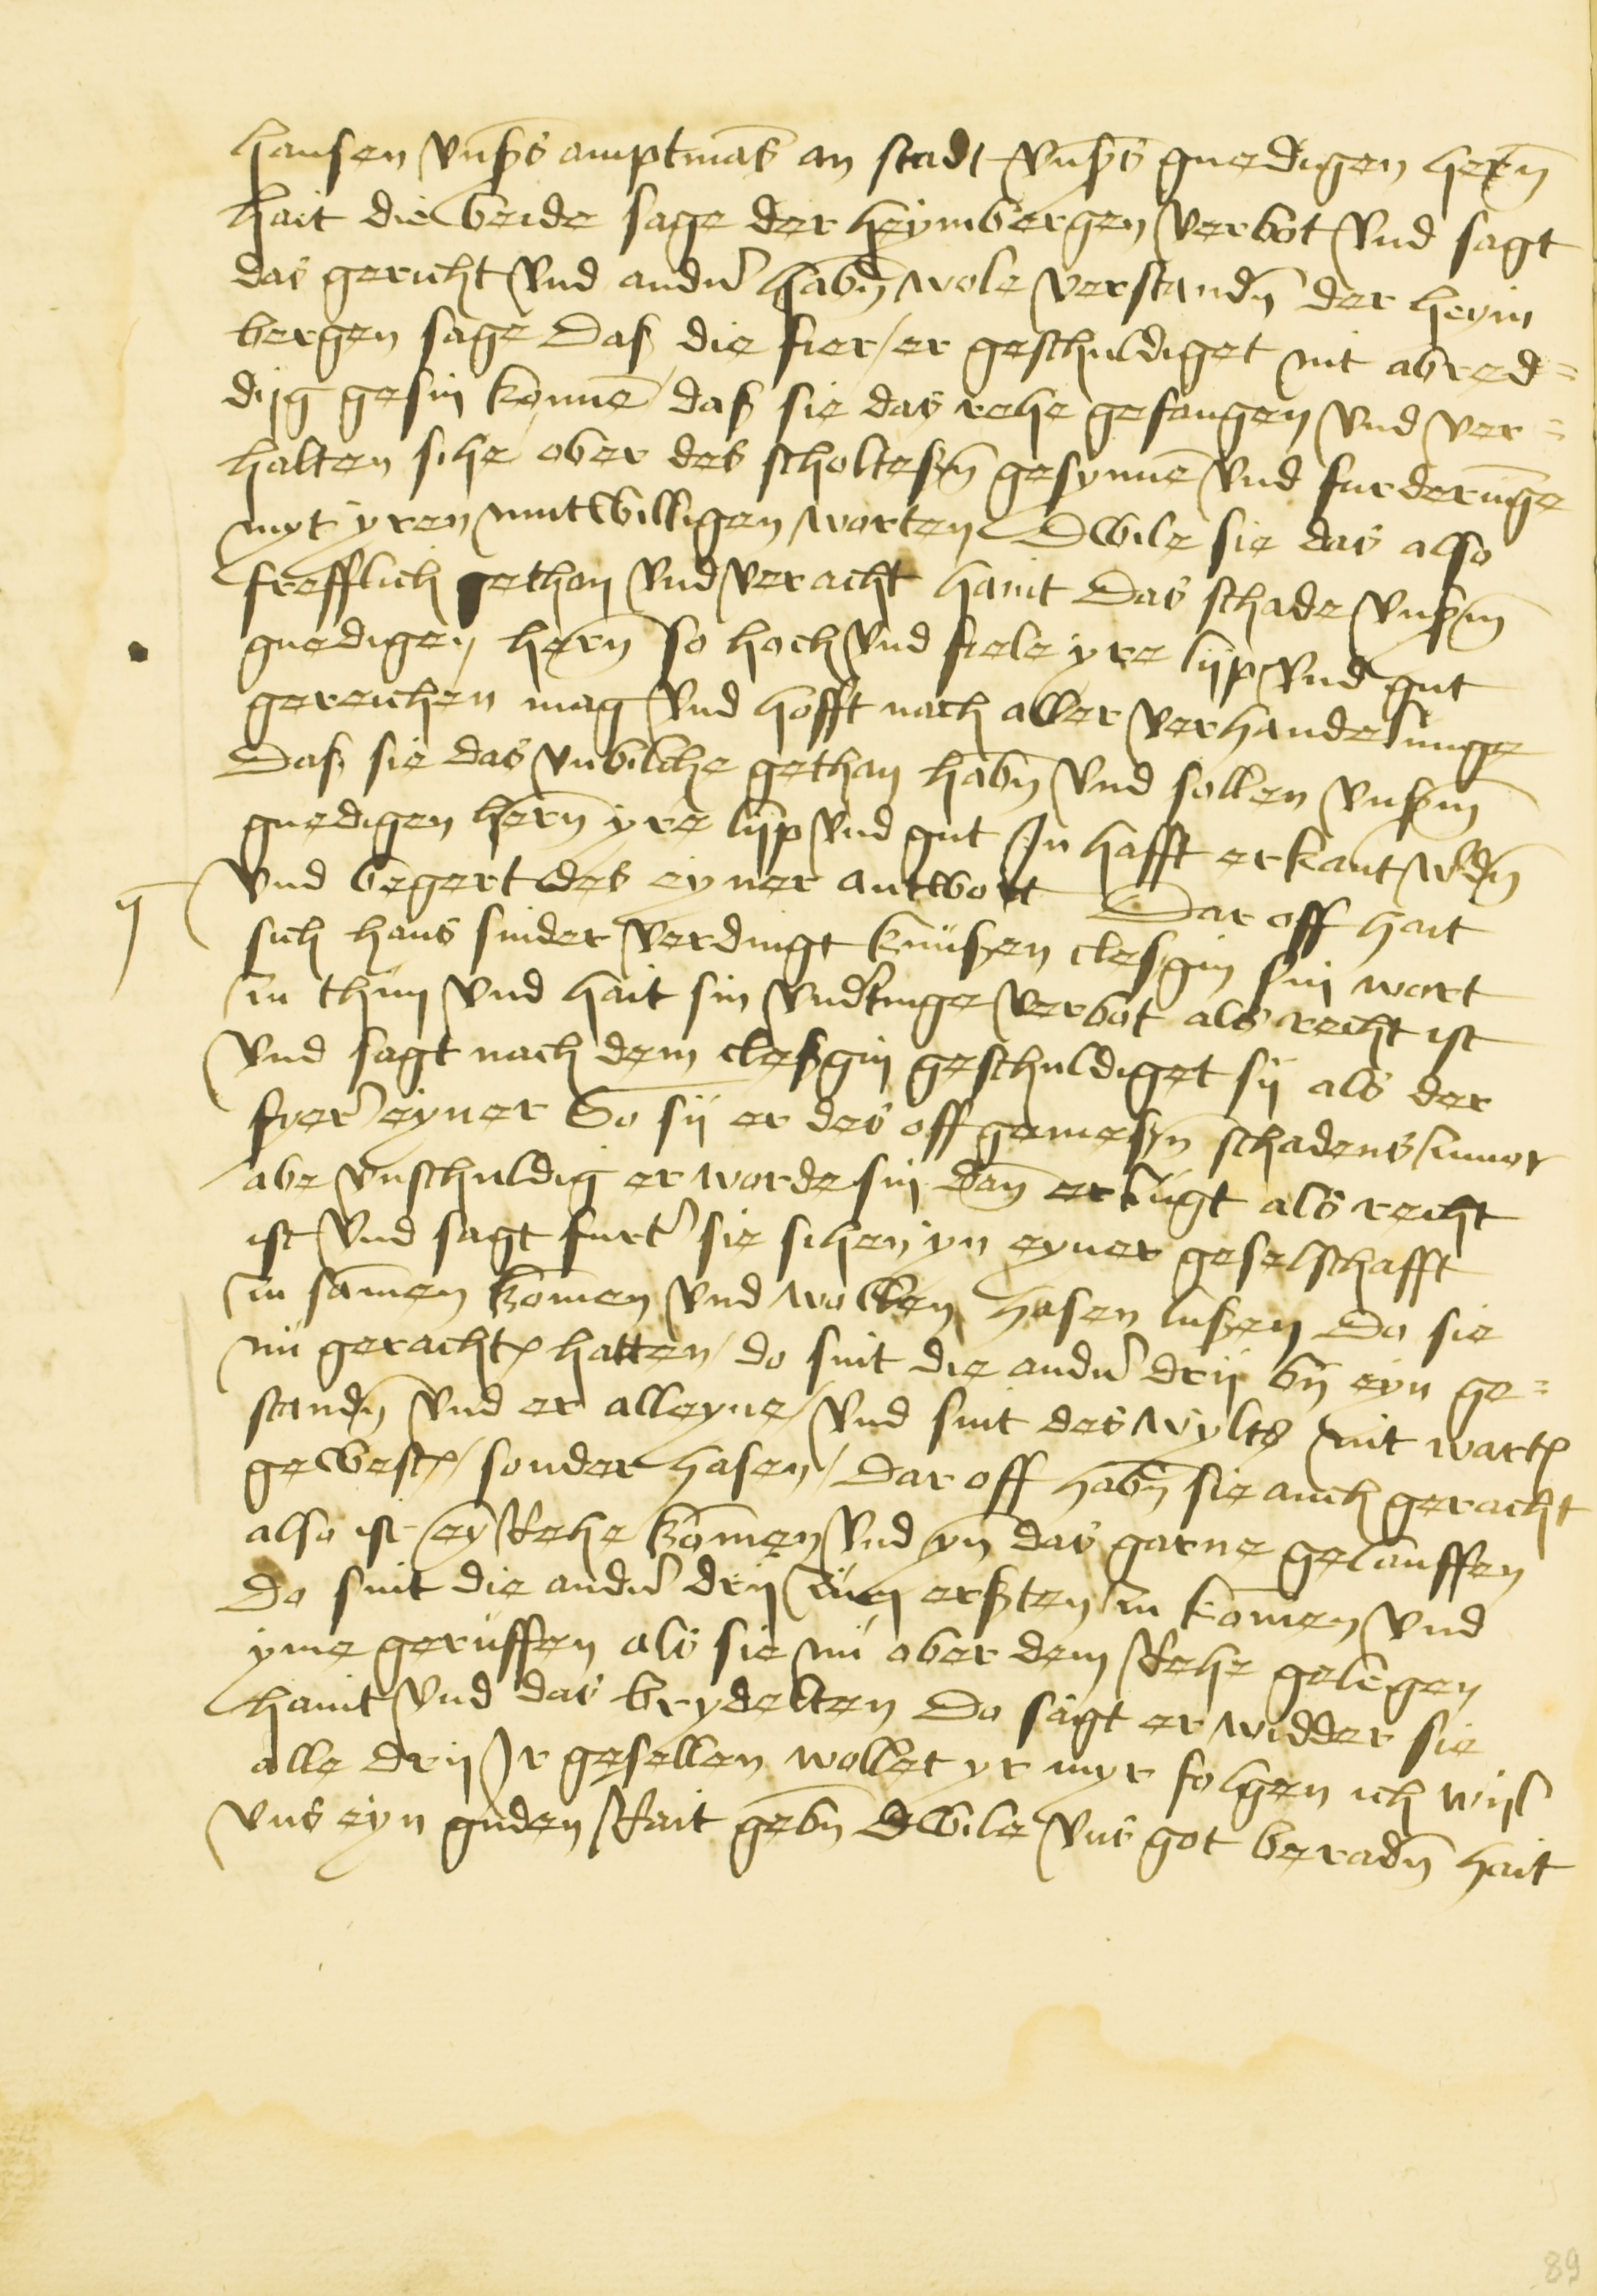 hansen vnßs amptmas an stadt vnßs gnedigen hern
hait die beide sage der heymbergen verbot vnd sagt
das gericht vnd ander habn wole verstandn der heym
bergen sage Daß die fier / er geschuldiget nit abred=
dijg gesin konne daß sie das rehe gefangen vnd ver=
halten sihe ober des scholteßn gesynne vnd furderunge
myt yren mutwilligen worten Dwile sie das also
frefflich gethan vnd veracht haint Das schade vnßm
gnedigen hern so hoch vnd fiele yre lijp vnd gut
gereichen mag vnd hofft nach aller verhandelunge
Daß sie das vnbilche gethan habn vnd sollen vnßm
gnedigen hern yre lijp vnd gut In hafft erkant wdn
vnd begert des eyner antwort Dar off hait
sich hans snider verdingt knußen cleßgin sin wort
zu thun vnd hait sin vnderdinge verbot als recht ist
vnd sagt nach dem cleßgin geschuldiget sij als der
fyer eyner So sij er des off gemeßn schadens zuuor
abe vnschuldig er worde sin dan erzugt als recht
ist vnd sagt furter sie sihen yn eyner geselschafft
zu samen komen vnd wolten hasen lußen Do sie
nu geracht hatten / do sint die ander drij by eyn ge=
standn vnd er alleyne / vnd sint des wylts nit wart
gewest / sonder hasen / Dar off habn sie auch geracht
also ist ey Rehe komen vnd yn das garne gelauffen
Do sint die ander drij zum erßten zu komen vnd
yme geruffen als sie nu ober dem Rehe gelegen
haint vnd das brydelten Do sagt er widder sie
alle drij Ir gesellen wollet yr myr folgen ich wijl
vns eyn guden Rait gebn Dwile vns got beradn hait
89